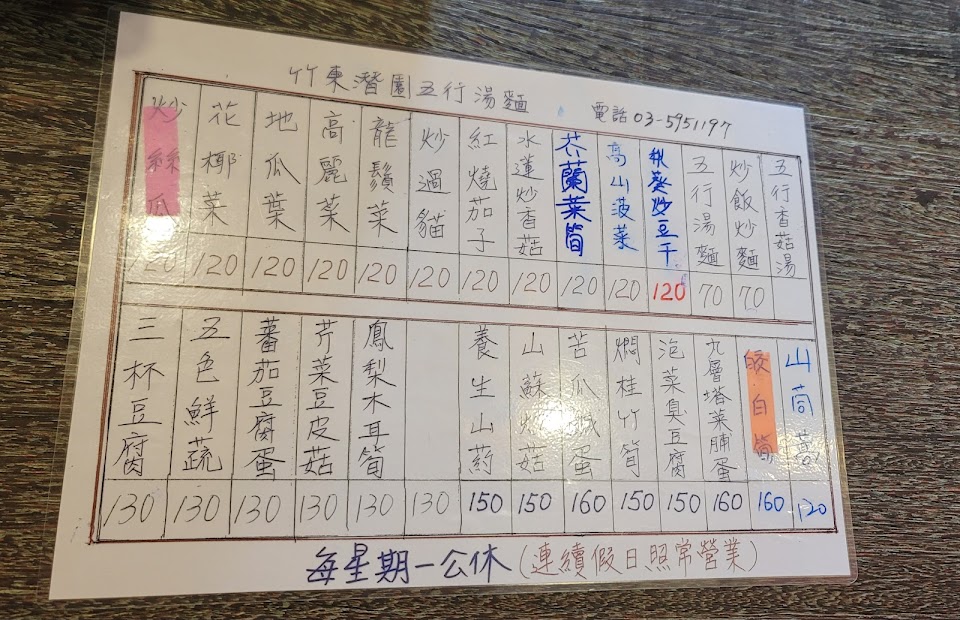 竹東潛園五行湯麵
電話03-5951197
五行香菇湯
炒飯炒麵
70
五行湯麵
70
秋葵炒豆干
120
高山菠菜
120
芥蘭菜筍
120
水蓮炒香菇
120
紅燒茄子
120
炒過貓
120
龍鬚菜
120
高麗菜
120
地瓜葉
120
花椰菜
120
炒絲瓜
120
山茼蒿
120
皎白筍
160
九層塔菜脯蛋
160
泡菜臭豆腐
150
燜桂竹筍
150
苦瓜鹹蛋
160
山蘇炒菇
150
養生山葯
150
130
鳳梨木耳筍
130
芹菜豆皮菇
130
蕃茄豆腐蛋
130
五色鮮蔬
130
三杯豆腐
130
每星期一公休(連續假日照常營業)